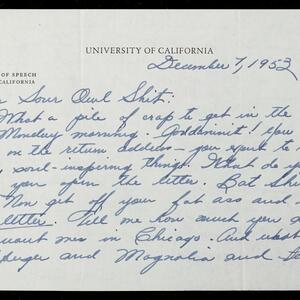 UNIVERSITY OF CALIFORNIA
OF SPEECH
CALIFORNIA
December 7, 1953
Sour Owl Shit:
What a pile of crap to get in the
Monday morning. Goddamnit! You
on the return address— you speak to
soul-inspiring things. What do y
you from the letter. Bat Shi
Now get off your fat ass and
letter. Tell me how much you
ones in Chicago. And what
and Magnolia and